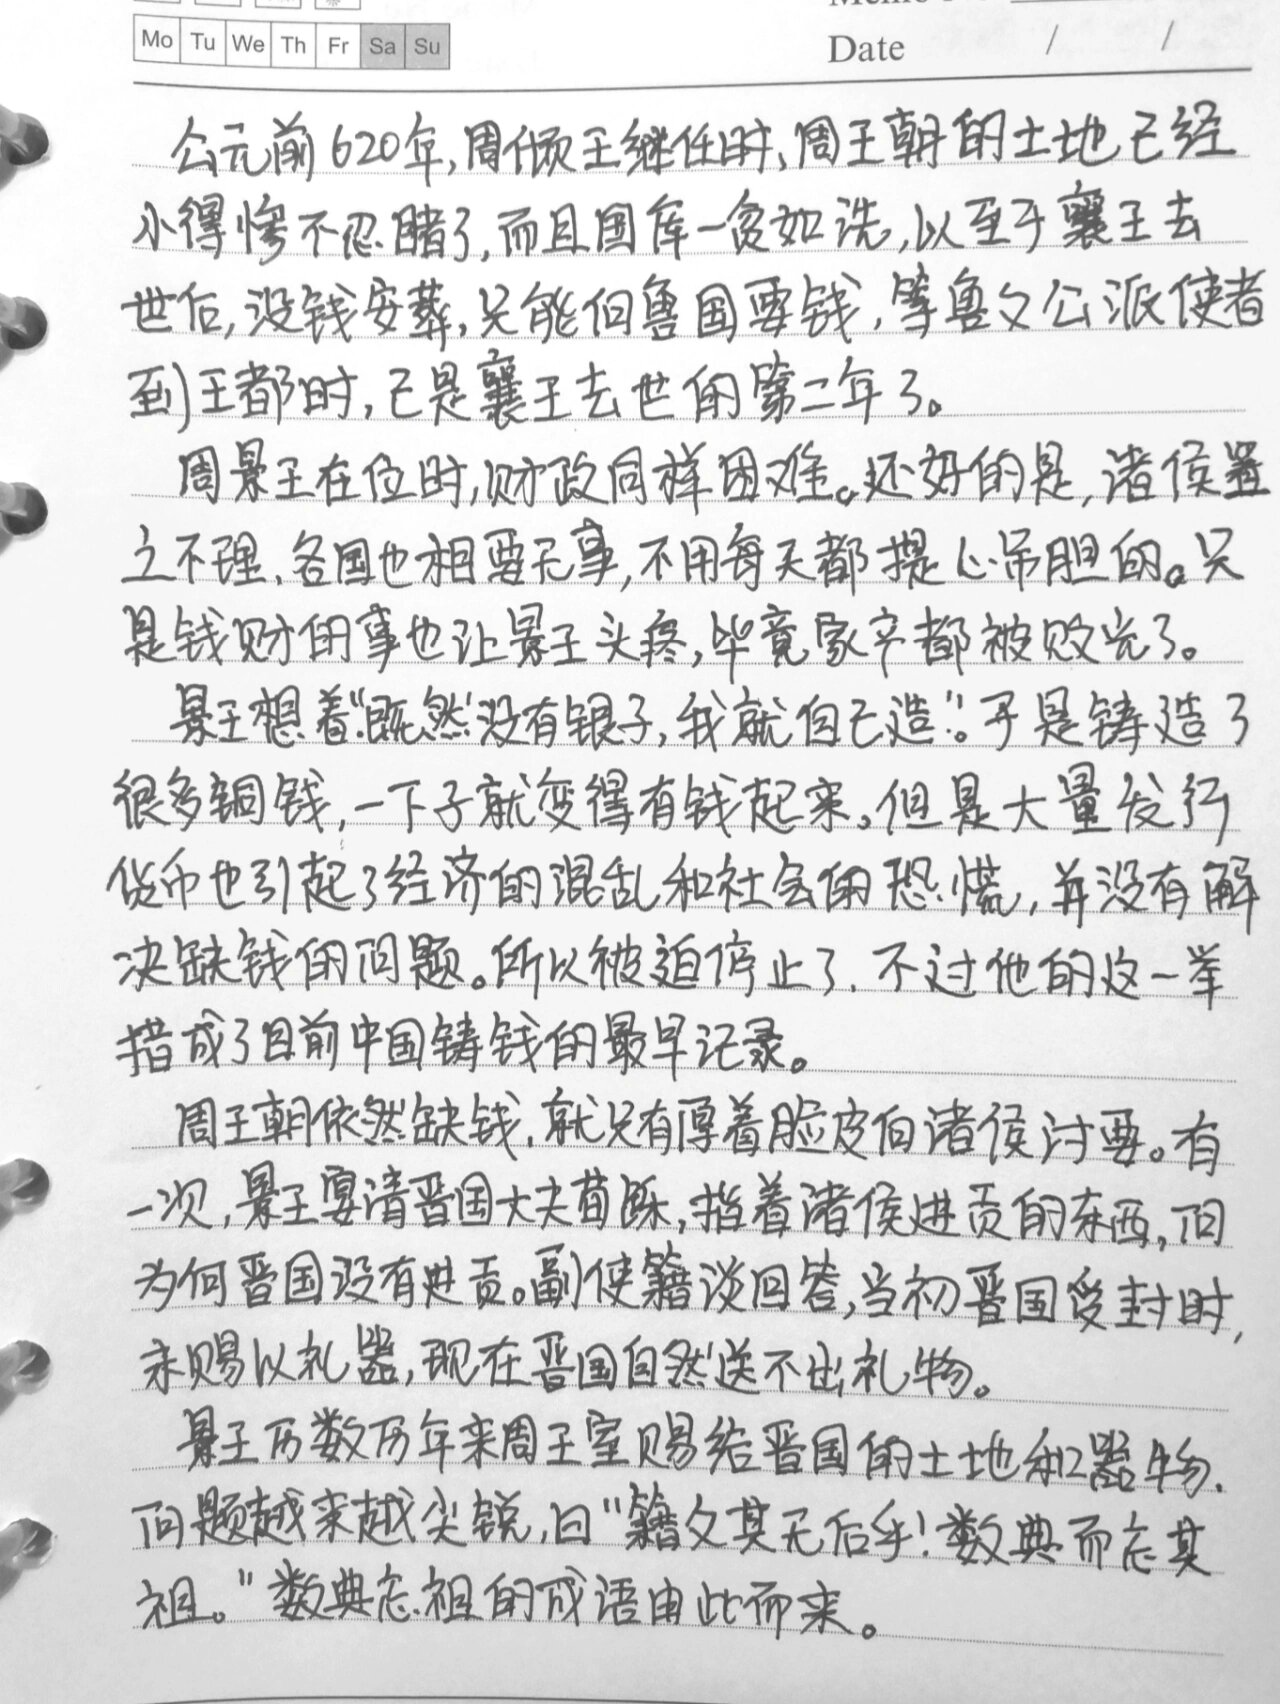 Mo Tu We Th Fr Sa Su
Date / /
公元前620年,周倾王继任时,周王朝的土地已经
小得惨不忍睹了,而且国库一贫如洗,以至于襄王去
世后,没钱安葬,只能向鲁国要钱,等鲁文公派使者
到王都时,已是襄王去世的第二年了。
周景王在位时,财政同样困难。还好的是,诸侯置
之不理,各国也相要无事,不用每天都提心吊胆的。只
是钱财的事也让景王头疼,毕竟家产都被败光了。
景王想着"既然没有银子,我就自己造"。于是铸造了
很多铜钱,一下子就变得有钱起来。但是大量发行
货币也引起了经济的混乱和社会的恐慌,并没有解
决缺钱的问题。所以被迫停止了,不过他的这一举
措成了目前中国铸钱的最早记录。
周王朝依然缺钱,就只有厚着脸皮向诸侯讨要。有
一次,景王宴请晋国大夫荀跞,指着诸侯进贡的东西,问
为何晋国没有进贡。副使籍谈回答,当初晋国受封时,
未赐以礼器,现在晋国自然送不出礼物。
景王历数历年来周王室赐给晋国的土地和器物,
问题越来越尖锐,曰"籍父其无后乎!数典而忘其
祖。"数典忘祖的成语由此而来。